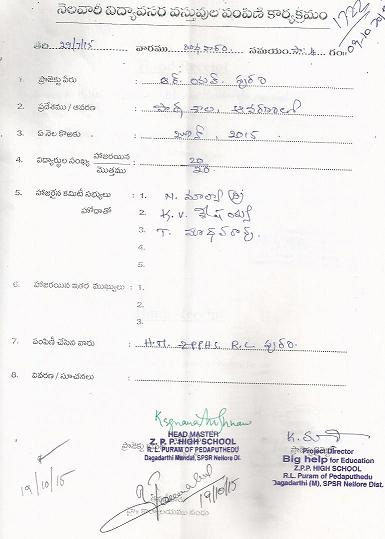 నెలవారీ విద్యావసర వస్తువుల పంపిణి కార్యక్రమం
1722
09.10.2015
తేది 29/7/15 వారము సమయం సా. 4 గం॥
1. ప్రాజెక్టు పేరు : ఆర్. యల్. పురం
2. ప్రదేశము / ఆవరణ :
3. ఏ నెల కొఱకు : జులై, 2015
4. విద్యార్థుల సంఖ్య హాజరయిన / మొత్తము : 20/20
5. హాజరైన కమిటీ సభ్యులు హోదాతో : 1. N.
2. K.V. శేషయ్య
3. T. మాధవరావు.
4.
5.
6. హాజరయిన ఇతర ముఖ్యులు : 1.
2.
3.
7. పంపిణీ చేసిన వారు : H.M. ZPPHS R.L పురం.
8. వివరణ / సూచనలు :
HEAD MASTER
Z. P.P. HIGH SCHOOL
R.L. PURAM OF PEDAPUTHEDU
Dagadarthi Mandal, SPSR Nellore Dt.
Project Director
Big help for Education
Z.P.P. HIGH SCHOOL
R.L. Puram of Pedaputhedu
Dagadarthi (M), SPSR Nellore Dist.
19/10/15
19/10/15